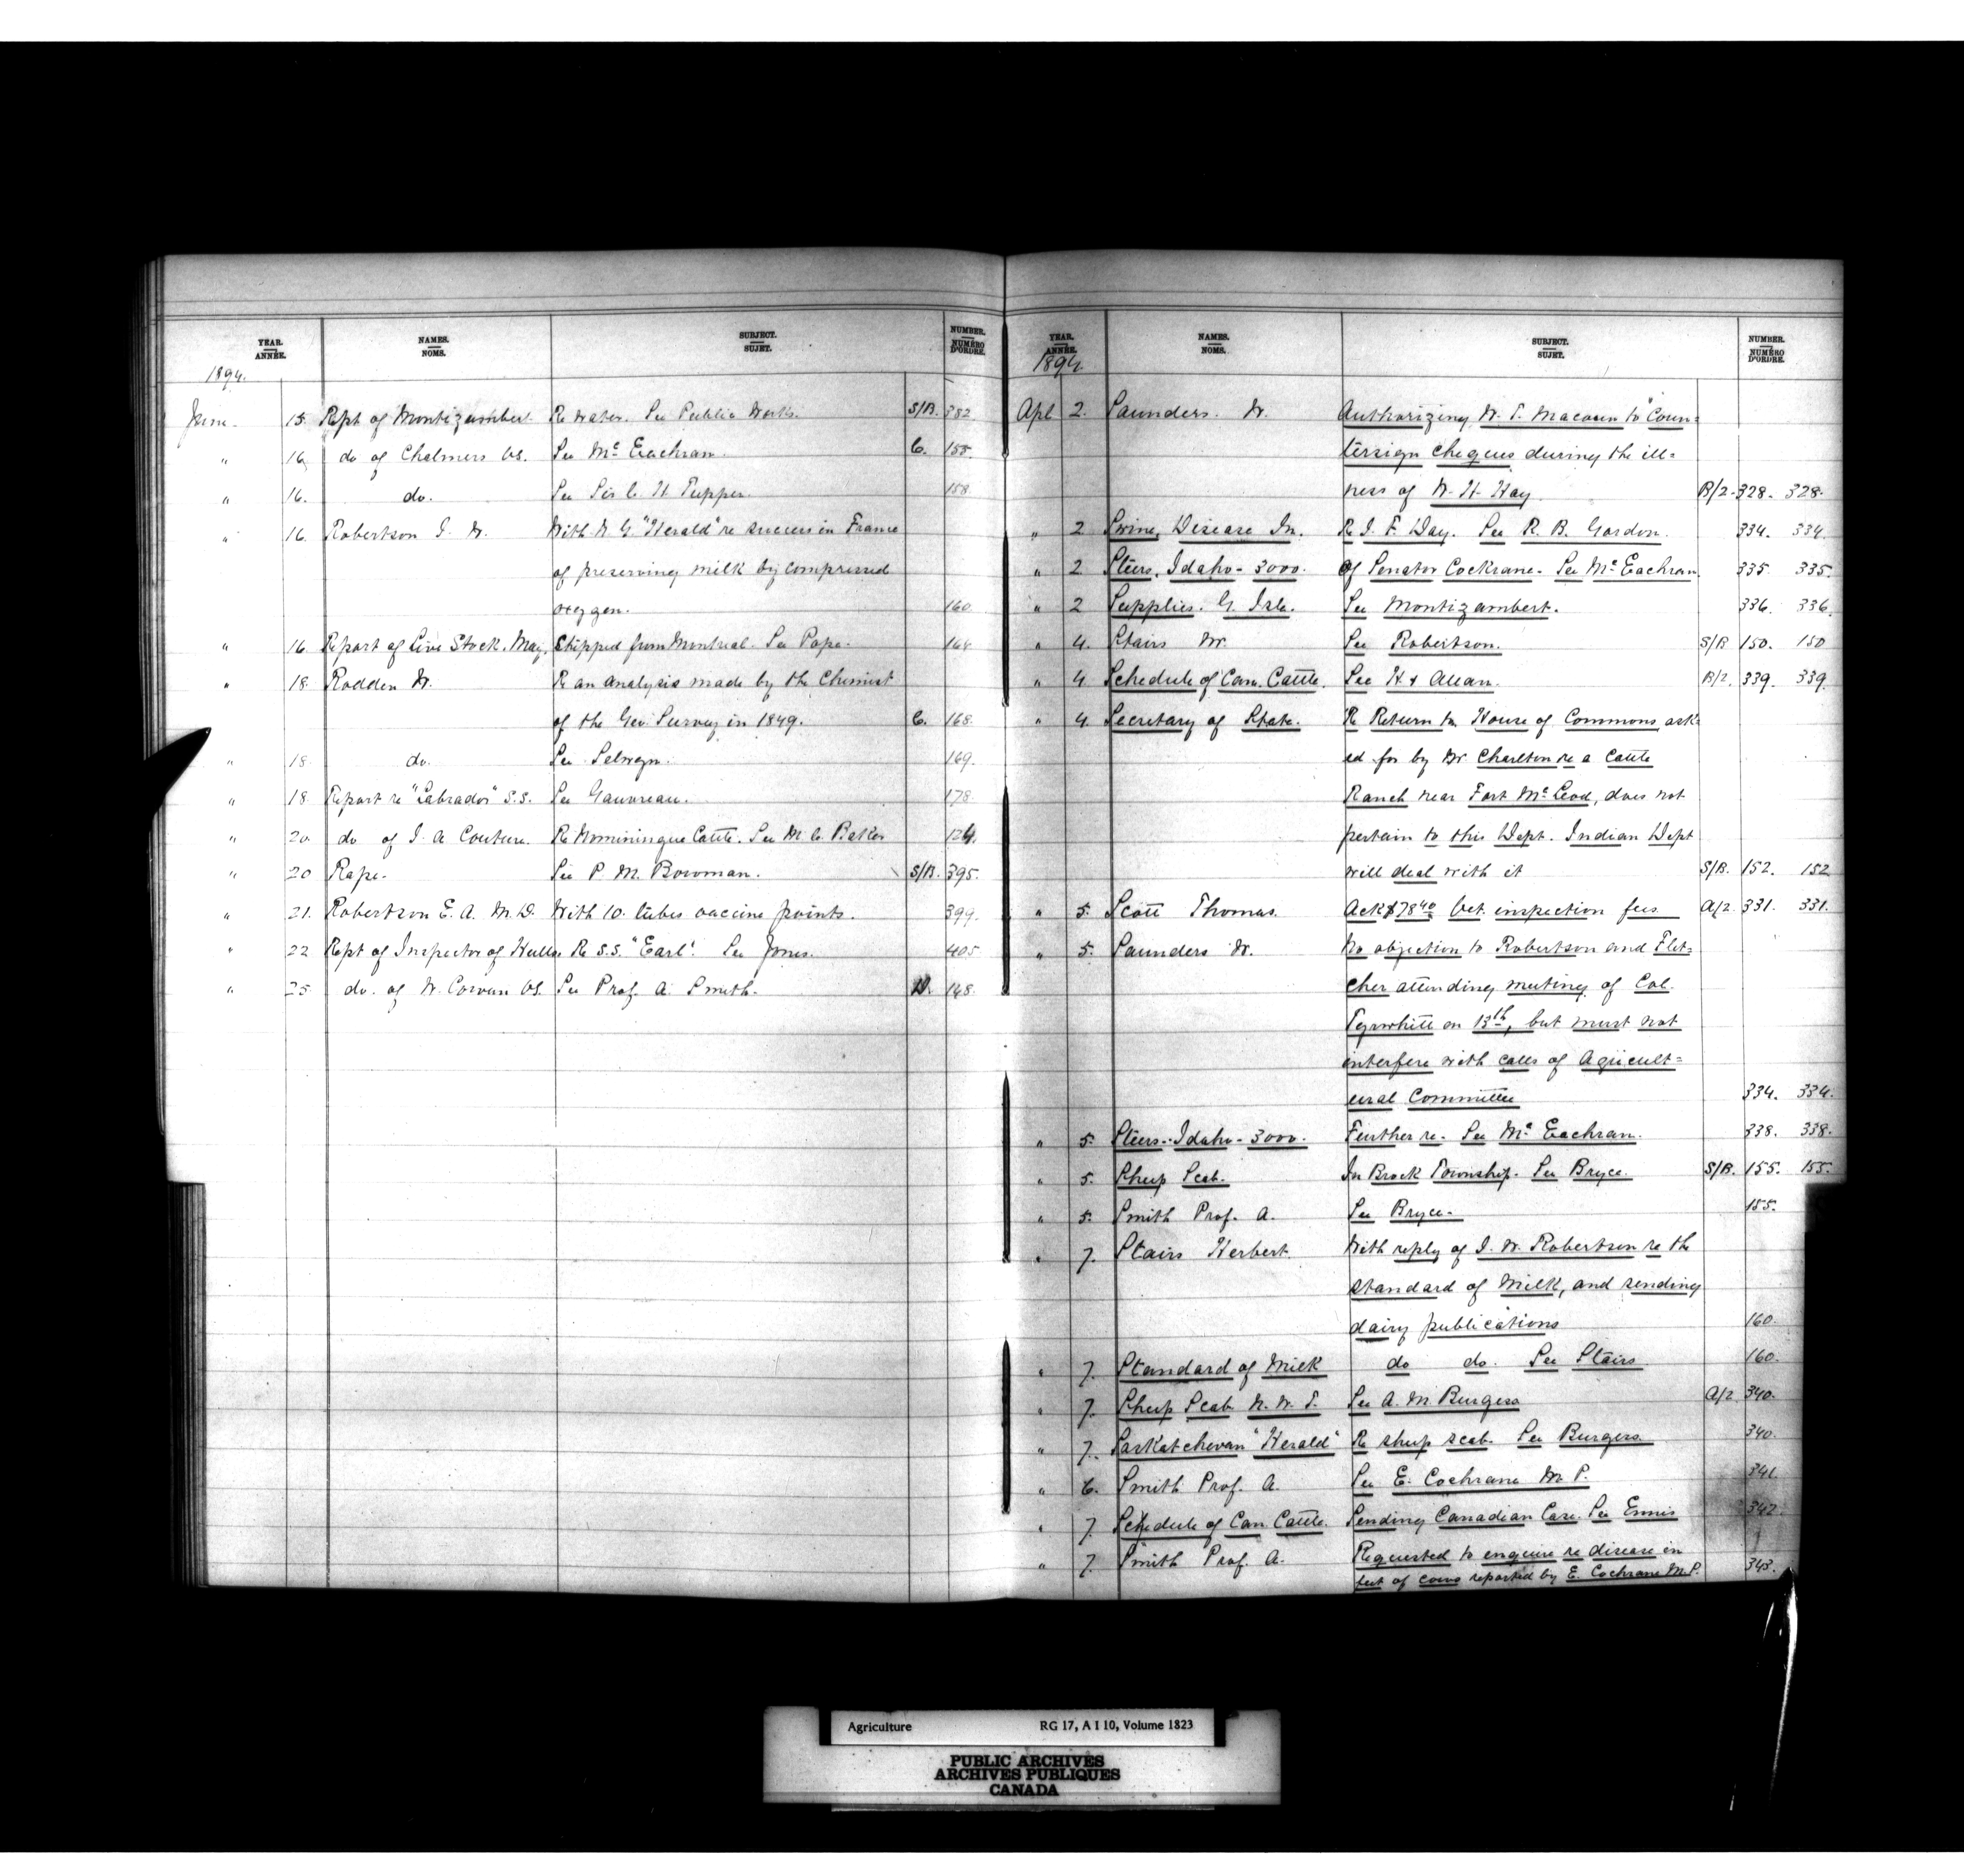 YEAR. ANNÉE. NAMES. NOMS. SUBJECT. SUJET. NUMBER. NUMÉRO D'ORDRE.
1894.
June 15. Rept of Montizambert. Re water. See Public Works. S/B. 382
" 16. do of Chalmers VS. See McEachran. C. 155.
" 16. do. See Sir C. H. Tupper. 158
" 16. Robertson J. W. With N. Y. "Herald" re success in France
of preserving milk by compressed
oxygen. 160.
" 16. Report of Live Stock. May, Shipped from Montreal. See Pope. 164
" 18. Rodden W. Re an analysis made by the Chemist
of the Geo. Survey in 1849. C. 168.
" 18. do. See Selwyn. 169.
" 18. Report re "Labrador" S.S. See Gauvreau. 178.
" 20. do of J. A. Couture. Re Nominingue Cattle. See M. C. Baker 124.
" 20 Rape. See P. M. Bowman. S/B. 395.
" 21. Robertson E. A. M. D. With 10. tubes vaccine points. 399.
" 22. Rept of Inspector of Hulls. Re S.S. "Earl". See Jones. 405.
" 25. do. of W. Cowan VS. See Prof. A. Smith. D. 148.
YEAR. ANNÉE. NAMES. NOMS. SUBJECT. SUJET. NUMBER. NUMÉRO D'ORDRE.
1894.
Apl 2. Saunders. W. Authorizing W. T. Macoun to "Coun=
tersign cheques during the ill=
ness of W. H. Hay. B/2. 328. 328.
" 2 Swine, Disease In. Re J. F. Day. See R. B. Gordon. 334. 334.
" 2 Steers, Idaho - 3000. Of Senator Cochrane. See McEachran. 335. 335.
" 2 Supplies. G. Isle. See Montizambert. 336. 336.
" 4. Stairs W. See Robertson. S/B 150. 150
" 4 Schedule of Can. Cattle. See H. & Allan. B/2. 339. 339.
" 4. Secretary of State. Re Return to House of Commons, ask=
ed for by Mr Charlton re a Cattle
Ranch near Fort McLeod, does not
pertain to this Dept. Indian Dept
will deal with it S/B. 152. 152
" 5. Scott Thomas. Ack $78.40 Vet. inspection fees A/2 331. 331.
" 5. Saunders W. No objection to Robertson and Flet=
cher attending meeting of Col.
Tyrwhitt on 13th, but must not
interfere with calls of Agricult=
ural Committee 334. 334.
" 5. Steers - Idaho - 3000. Further re. See McEachran. 338. 338.
" 5. Sheep Scab. In Brock Township. See Bryce. S/B. 155. 155.
" 5. Smith Prof. A. See Bryce. 155.
" 7. Stairs Herbert. With reply of J. W. Robertson re the
standard of Milk, and sending
dairy publications 160.
" 7. Standard of Milk do do. See Stairs 160.
" 7. Sheep Scab N. W. T. See A. M. Burgess A/2 340.
" 7. Saskatchewan "Herald" Re sheep scab. See Burgess. 340.
" 6. Smith Prof. A. See E. Cochrane M. P. 341.
" 7. Schedule of Can. Cattle. Sending Canadian Case. See Ennis 342.
" 7. Smith Prof. A. Requested to enquire re disease in
feet of cows reported by E. Cochrane M.P. 343.
Agriculture RG 17, A I 10, Volume 1823
PUBLIC ARCHIVES
ARCHIVES PUBLIQUES
CANADA